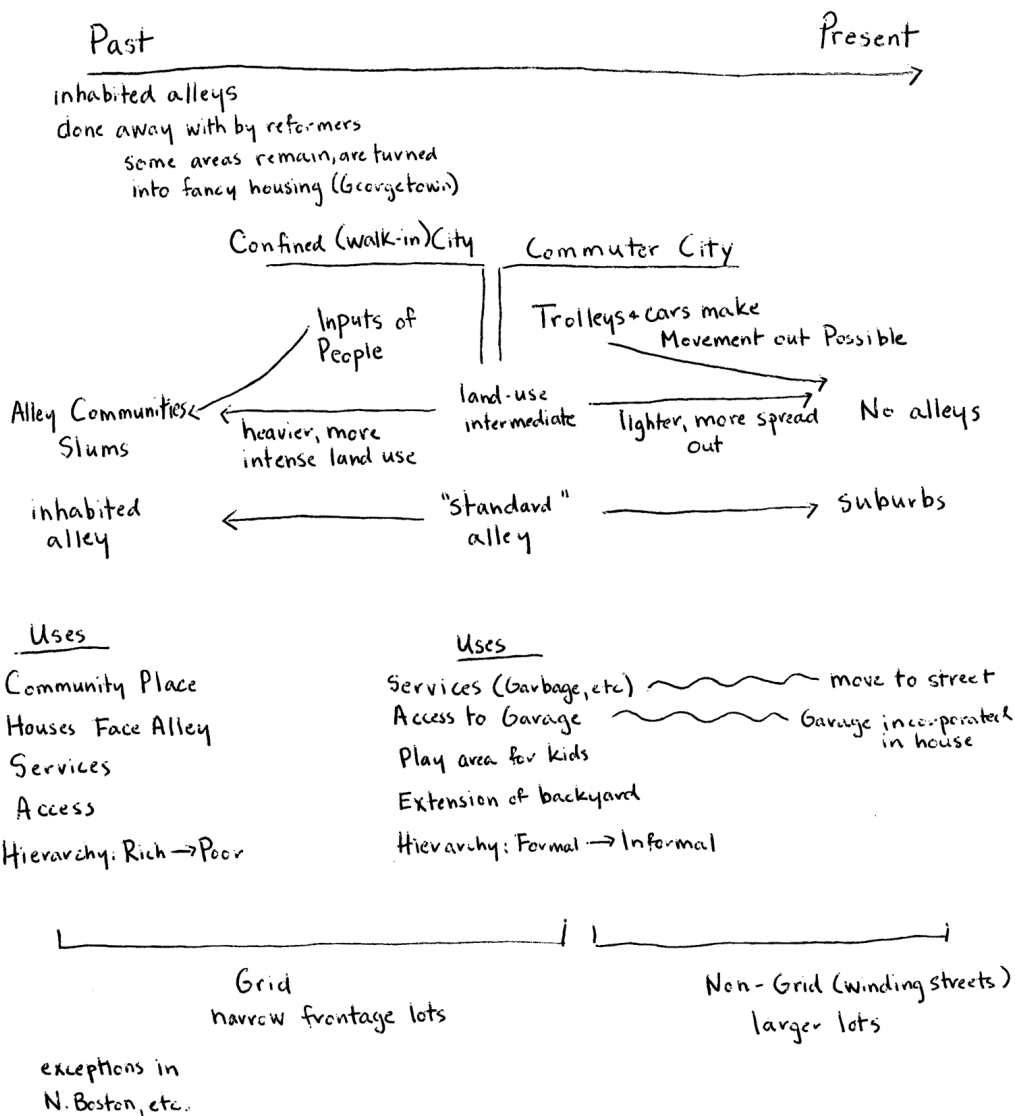 Past
Present
inhabited alleys
done away with by reformers
some areas remain, are turned
into fancy housing (Georgetown)
Confined (walk-in) City
Commuter City
Inputs of
People
Trolleys + cars make
Movement out Possible
Alley Communities
Slums
heavier, more
intense land use
land-use
intermediate
lighter, more spread
out
No alleys
inhabited
alley
"standard"
alley
suburbs
Uses
Community Place
Houses Face Alley
Services
Access
Hierarchy: Rich → Poor
Uses
Services (Garbage, etc)
move to street
Access to Garage
Garage incorporated
in house
Play area for kids
Extension of backyard
Hierarchy: Formal → Informal
Grid
narrow frontage lots
Non-Grid (winding streets)
larger lots
exceptions in
N. Boston, etc.